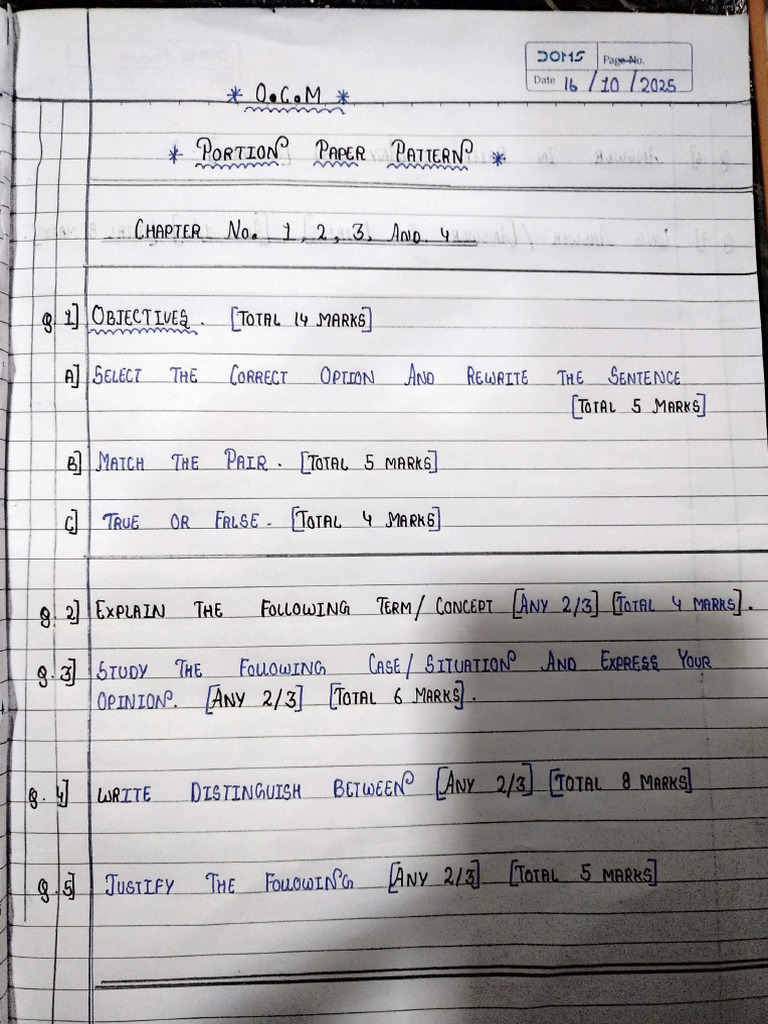 DOMS Page No.
Date 16/10/2025
* O.C.M *
* PORTION PAPER PATTERN *
CHAPTER No. 1, 2, 3, AND 4
Q. 1] OBJECTIVES. [TOTAL 14 MARKS]
A] SELECT THE CORRECT OPTION AND REWRITE THE SENTENCE
[TOTAL 5 MARKS]
B] MATCH THE PAIR. [TOTAL 5 MARKS]
C] TRUE OR FALSE. [TOTAL 4 MARKS]
Q. 2] EXPLAIN THE FOLLOWING TERM/ CONCEPT [ANY 2/3] [TOTAL 4 MARKS].
Q. 3] STUDY THE FOLLOWING CASE/ SITUATION AND EXPRESS YOUR
OPINION. [ANY 2/3] [TOTAL 6 MARKS].
Q. 4] WRITE DISTINGUISH BETWEEN [ANY 2/3] [TOTAL 8 MARKS]
Q. 5] JUSTIFY THE FOLLOWING [ANY 2/3] [TOTAL 5 MARKS]